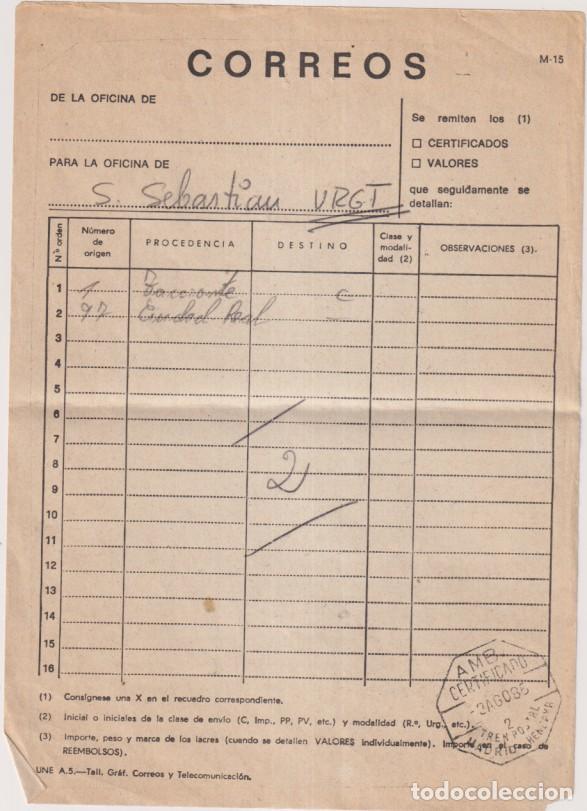 CORREOS
M-15
DE LA OFICINA DE
Se remiten los (1)
☐ CERTIFICADOS
PARA LA OFICINA DE
☐ VALORES
S. Sebastian URGT
que seguidamente se detallan:
Nº orden
Número de origen
PROCEDENCIA
DESTINO
Clase y modalidad (2)
OBSERVACIONES (3).
1 1 C
2 97 Ciudad Real
3
4
5
6
7
8
2
9
10
11
12
13
14
15
16
AMB.
CERTIFICADO
3 AGO 86
2
TREN POSTAL
MADRID HENDAYA
(1) Consígnese una X en el recuadro correspondiente.
(2) Inicial o iniciales de la clase de envío (C, Imp., PP, PV, etc.) y modalidad (R.º, Urg., etc.).
(3) Importe, peso y marca de los lacres (cuando se detallen VALORES individualmente). Importe en el caso de
REEMBOLSOS).
UNE A.5.—Tall. Gráf. Correos y Telecomunicación.
todocoleccion